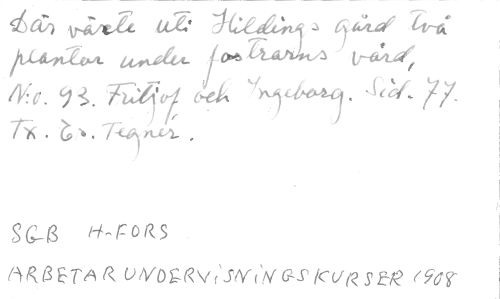 Där växte uti Hildings gård två
plantor under fostrarns vård,
N:o. 93. Fritjof och Ingeborg. Sid. 77.
Tx. Es. Tegnér.
SGB H-FORS
ARBETARUNDERVISNINGSKURSER 1908